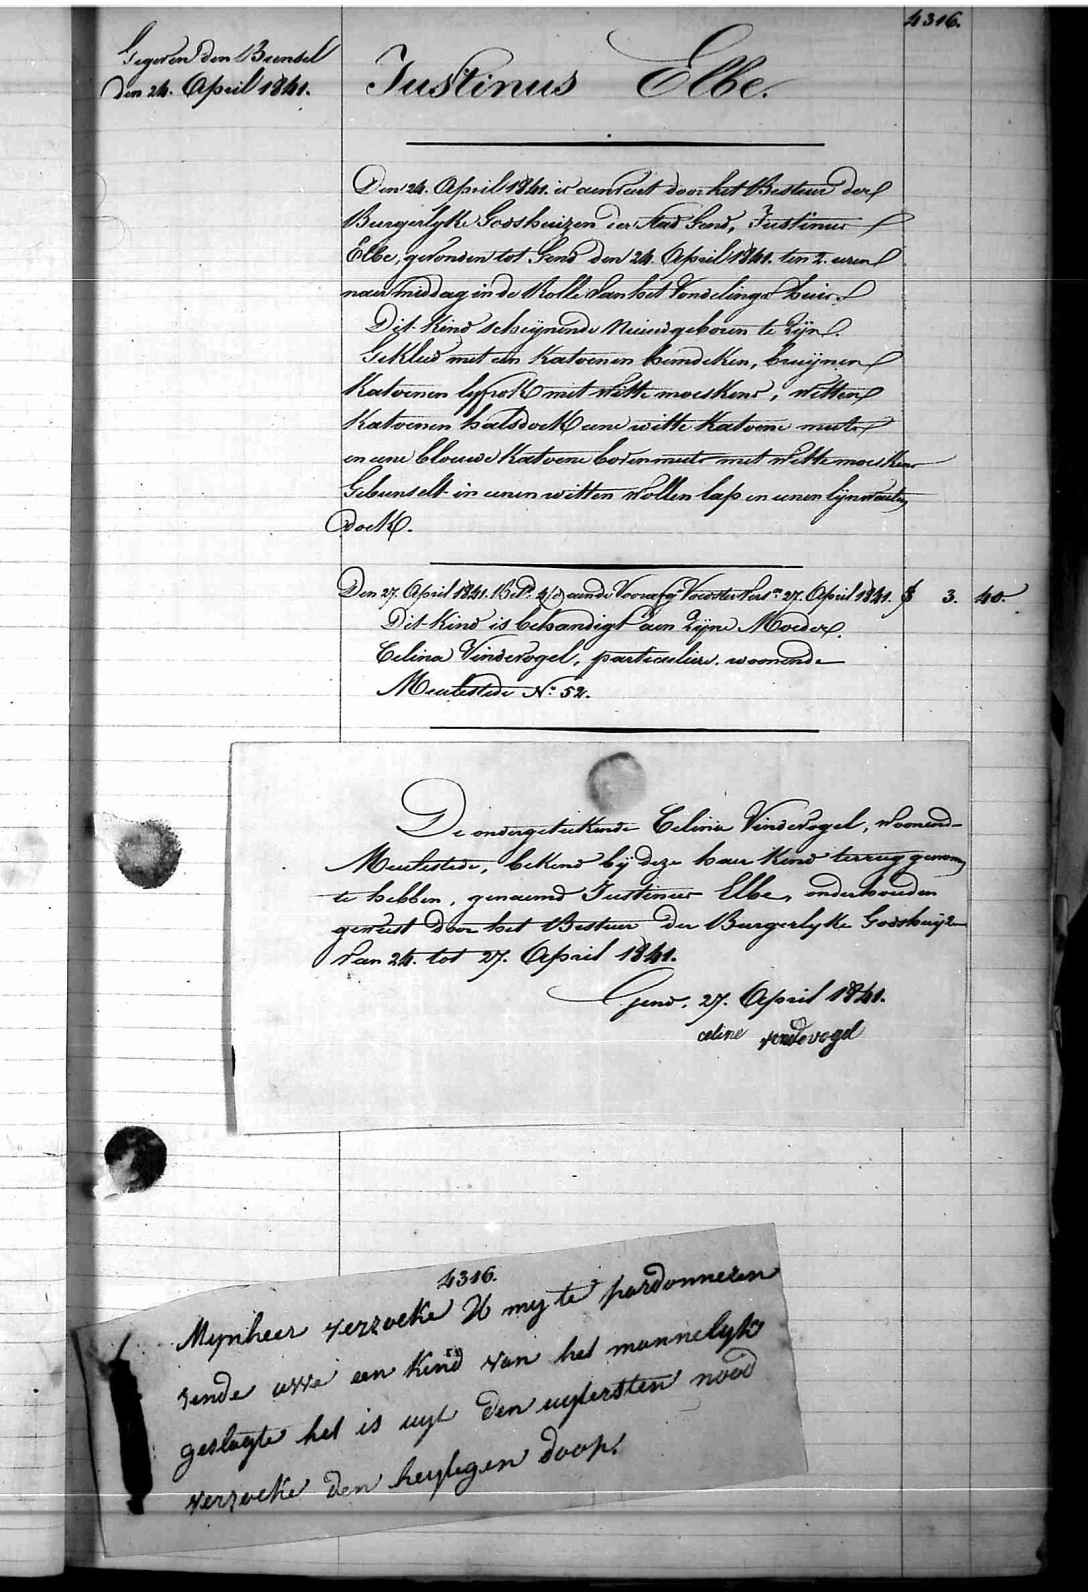 4316.
Gegeven den Bunsel
den 24. April 1841.
Justinus Elbe.
Den 24. April 1841. is aenveirt door het Bestuer der
Burgerlyke Godshuizen der Stad Gend, Justinus
Elbe, gevonden tot Gend den 24. April 1841. ten 2. uren
naer middag in de Rolle van het Vondelings huis.
Dit Kind scheijnende nieuwgeboren te zijn.
Gekleed met een Katoenen hemdeken, bruijnen
Katoenen lyfrok met witte moeskens, witten
Katoenen halsdoek eene witte Katoene muts
en eene blouwe Katoene bovenmuts met witte moeskens
Gebunselt in eenen witten wollen lap en eenen lijnwaeten
doek.
Den 27. April 1841. aende Voedster 27. April 1841. 3. 40.
Dit Kind is behandigt aen zijne Moeder
Celina Vindevogel, particuliere. woonende
Meulestede N.º 52.
De ondergeteekende Celina Vindevogel, woonend
Meulestede, bekend bij deze haer Kind terrug genomen
te hebben, genaemd Justinus Elbe, onderhouden
geweest door het Bestuur der Burgerlyke Godshuijzen
van 24. tot 27. April 1841.
Gend, 27. April 1841.
celine vendevogel
4316.
Mynheer verzoeke U my te pardonneren
zende uwe een kind van het mannelyk
geslagte het is uyt den uytersten nood
verzoeke den heyligen doop.